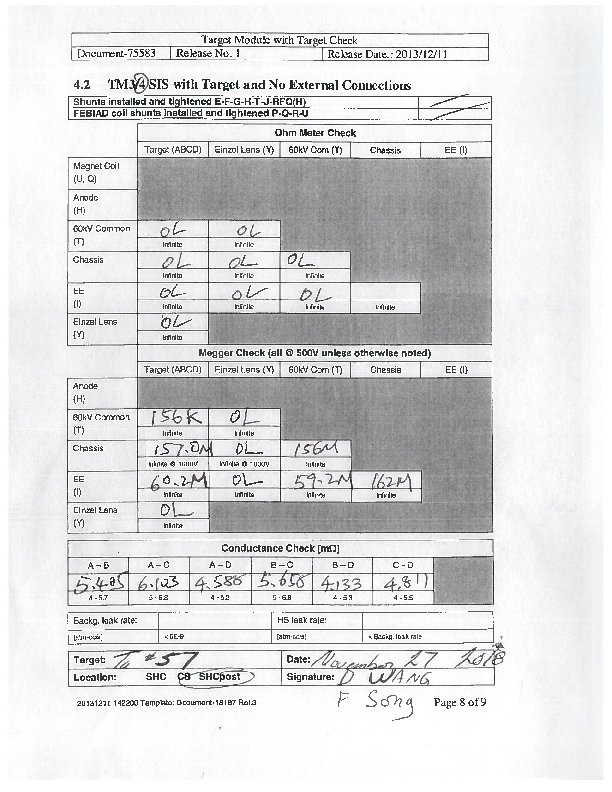 Target Module with Target Check
Document-75583 Release No. 1 Release Date.: 2013/12/11
4.2 TM3/4 SIS with Target and No External Connections
Shunts installed and tightened E-F-G-H-T-J-RFQ(H)
FEBIAD coil shunts installed and tightened P-Q-R-U
Ohm Meter Check
Target (ABCD) Einzel Lens (Y) 60kV Com (T) Chassis EE (I)
Magnet Coil
(U, Q)
Anode
(H)
60kV Common OL OL
(T) Infinite Infinite
Chassis OL OL OL
Infinite Infinite Infinite
EE OL OL OL
(I) Infinite Infinite Infinite Infinite
Einzel Lens OL
(Y) Infinite
Megger Check (all @ 500V unless otherwise noted)
Target (ABCD) Einzel Lens (Y) 60kV Com (T) Chassis EE (I)
Anode
(H)
60kV Common 156K OL
(T) Infinite Infinite
Chassis 157.0M OL 156M
Infinite @ 1000V Infinite @ 1000V Infinite
EE 60.2M OL 59.2M 162M
(I) Infinite Infinite Infinite Infinite
Einzel Lens OL
(Y) Infinite
Conductance Check [mΩ]
A - B A - C A - D B - C B - D C - D
5.495 6.123 4.586 5.658 4.133 4.811
4 - 5.7 5 - 6.8 4 - 5.2 5 - 6.8 4 - 5.3 4 - 5.5
Backg. leak rate: HS leak rate:
[atm-cc/s] < 5E-9 [atm-cc/s] < Backg. leak rate
Target: Ta #57 Date: November 27 2018
Location: SHC CB SHCpost Signature: D WANG
F Song
20131210 142200 Template: Document-18187 Rel.3 Page 8 of 9